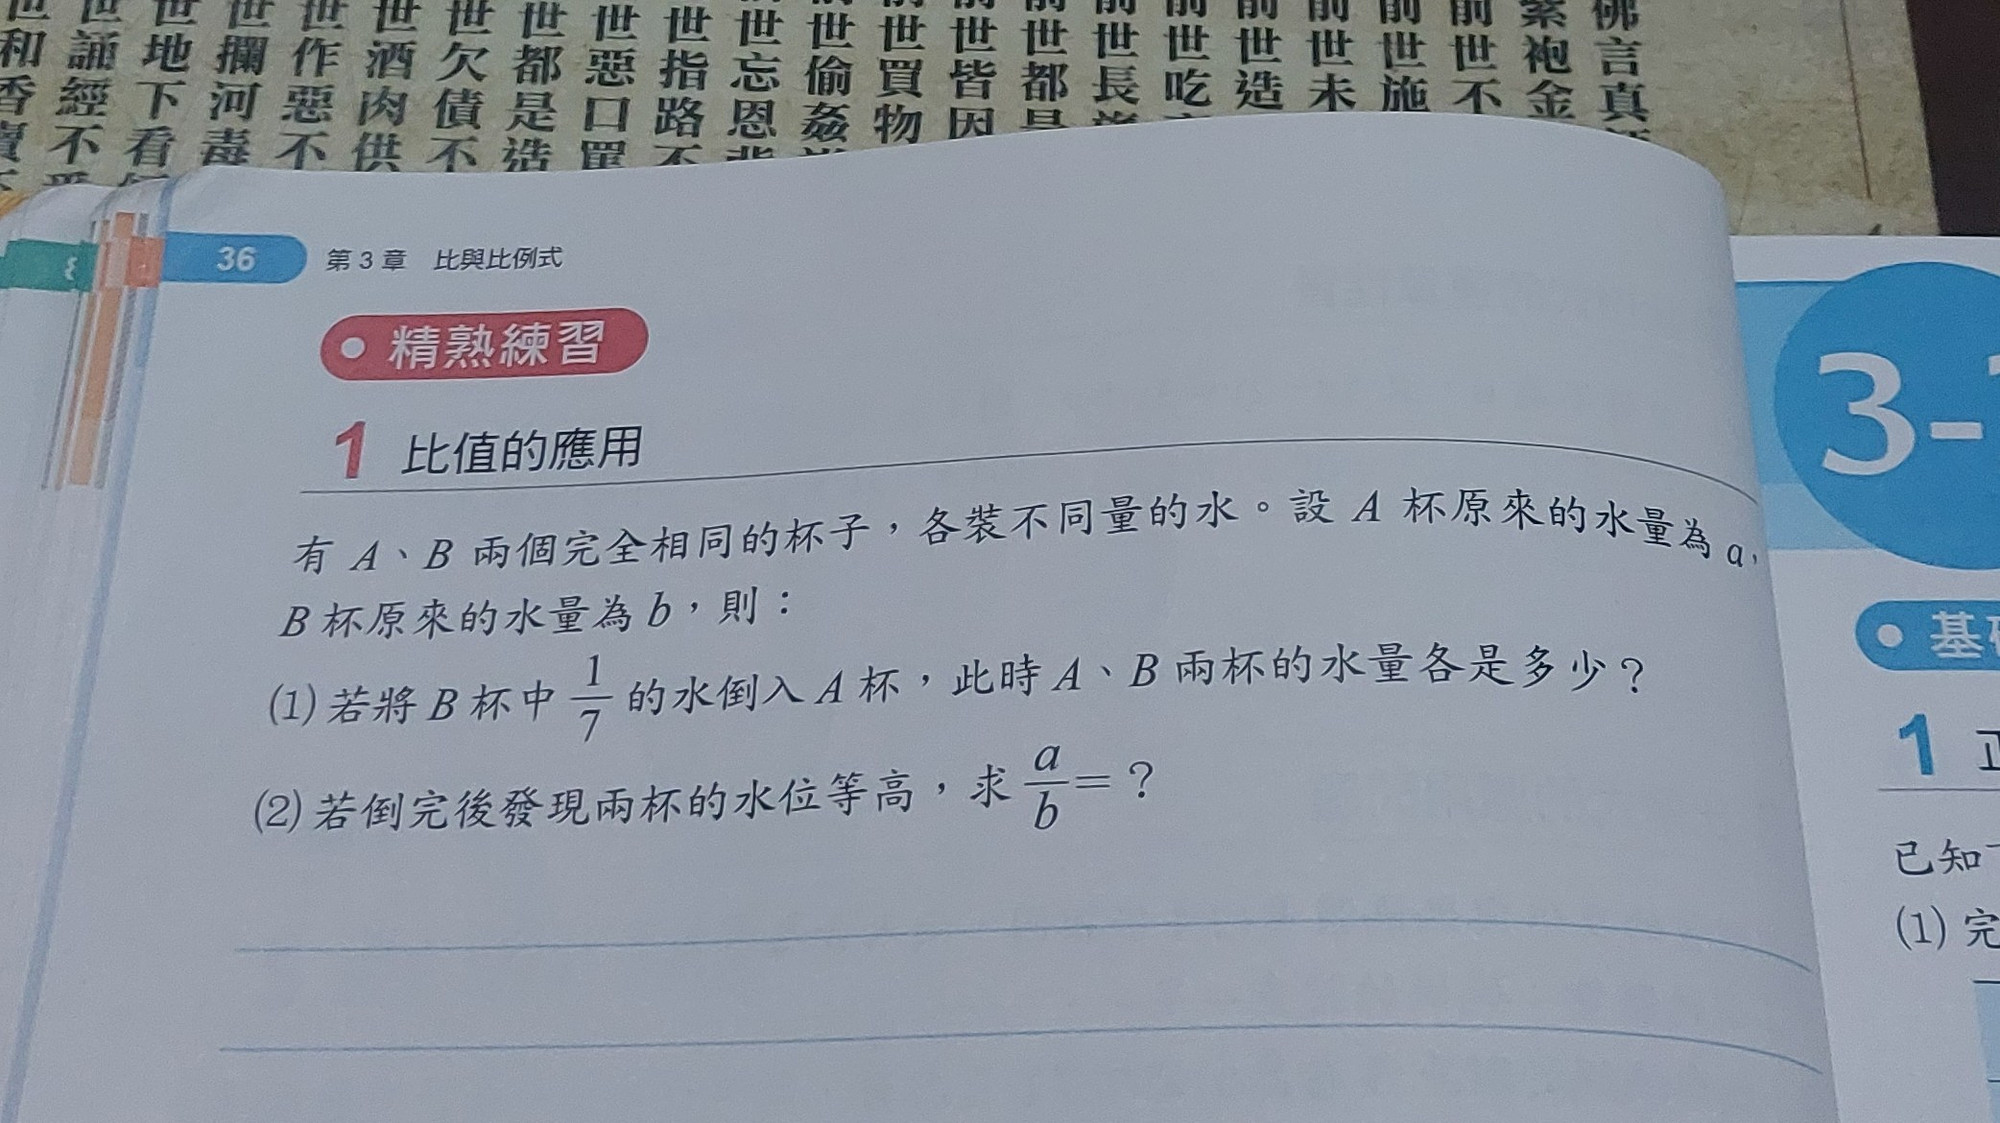 佛言真
紫袍金
前世不
前世施
前世未
前世造
前世吃
前世長
前世都是
前世皆因
前世買物
前世偷姦
世忘恩
世指路不
世惡口罵
世都是造
世欠債不
世酒肉供
世作惡不
世攔河毒
世地下看
世誦經不
和香賣
36 第3章 比與比例式
精熟練習
1 比值的應用
有 A、B 兩個完全相同的杯子,各裝不同量的水。設 A 杯原來的水量為 a,
B 杯原來的水量為 b,則:
(1) 若將 B 杯中 1/7 的水倒入 A 杯,此時 A、B 兩杯的水量各是多少?
(2) 若倒完後發現兩杯的水位等高,求 a/b = ?
3-
基
1
已知
(1) 完